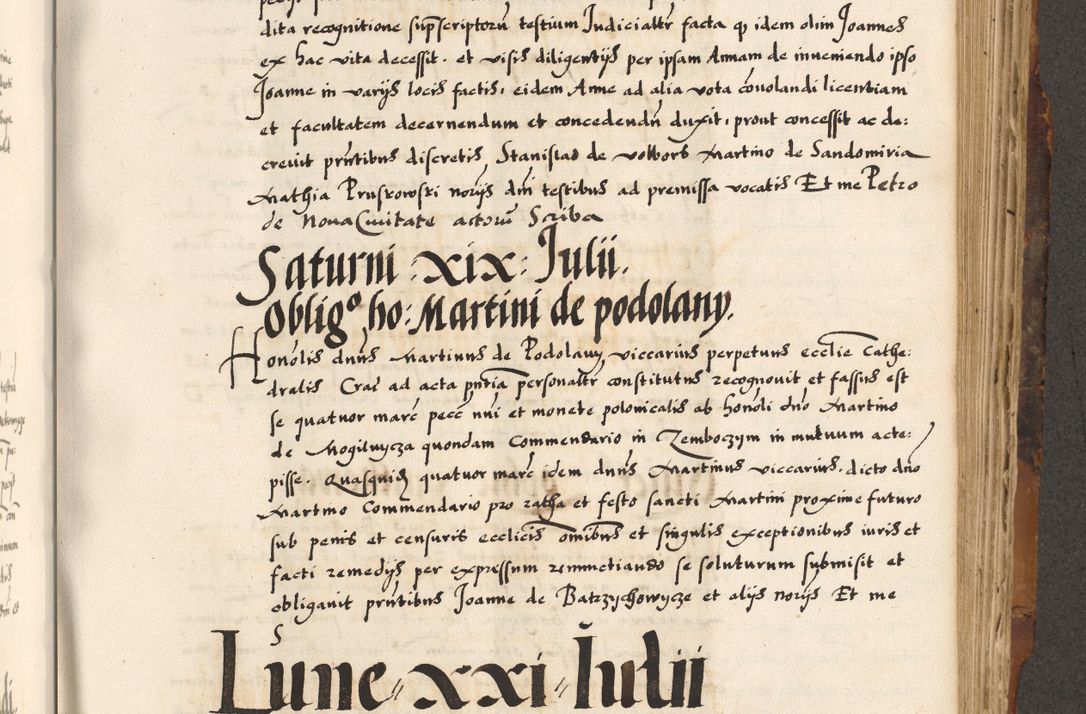 dita recognitione sup̄scriptorū testium Judicialtr̄ facta q̨ idem olim Joannes
ex hac vita decessit. et visis diligentijs per ipsam Annam de inueniendo ipso
Joanne in varijs locis factis, eidem Anne ad alia vota cōuolandi licentiam
et facultatem decernendum et concedendū duxit, prout concessit ac de:
creuit pn̄tibus discretis Stanislao de Wolbors Martino de Sandomiria
Mathia Pruskowski norijs dni testibus ad premissa vocatis Et me Petro
de Noua Ciuitate actorū Scriba
Saturni : xix : Julii.
Obligº ho: Martini de podolany.
Honolis dnns Martinus de Podolany viccarius perpetuus ecclie Cathe:
dralis Crac ad acta pn̄tia personaltr̄ constitutus recognouit et fassus est
se quatuor marc̄ pecc̄ nui et monete polonicalis ab honōli dno Martino
de Mogiluycza quondam Commendario in Zemboczym in mutuum acce:
pisse. Quasquid quatuor marc̄ idem dnns Martinus viccarius, dicto dno
Martino Commendario pro ratha et festo sancti Martini proxime futuro
sub penis et censuris ecclicis omībus et singulis exceptionibus iuris et
facti remedijs per expressum renunctiando se soluturum submisit et
obligauit pn̄tibus Joanne de Batrzychowycze et alijs norijs Et me
S
Lune xxi Julii